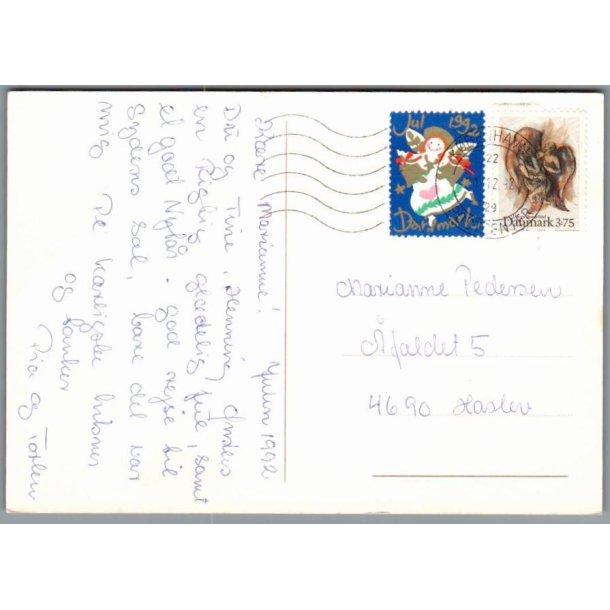 Kære Marianne! Julen 1992
Du og Tine, Henning, Anders
en Rigtig glædelig jul, samt
et godt Nytår - god rejse til
Sydens sol, bare det var
mig De kærligste hilsner
og tanker
Pia og Torben
Jul 1992
Danmark
22
12.92
Danmark 3.75
Marianne Pedersen
Åfaldet 5
4690 Haslev